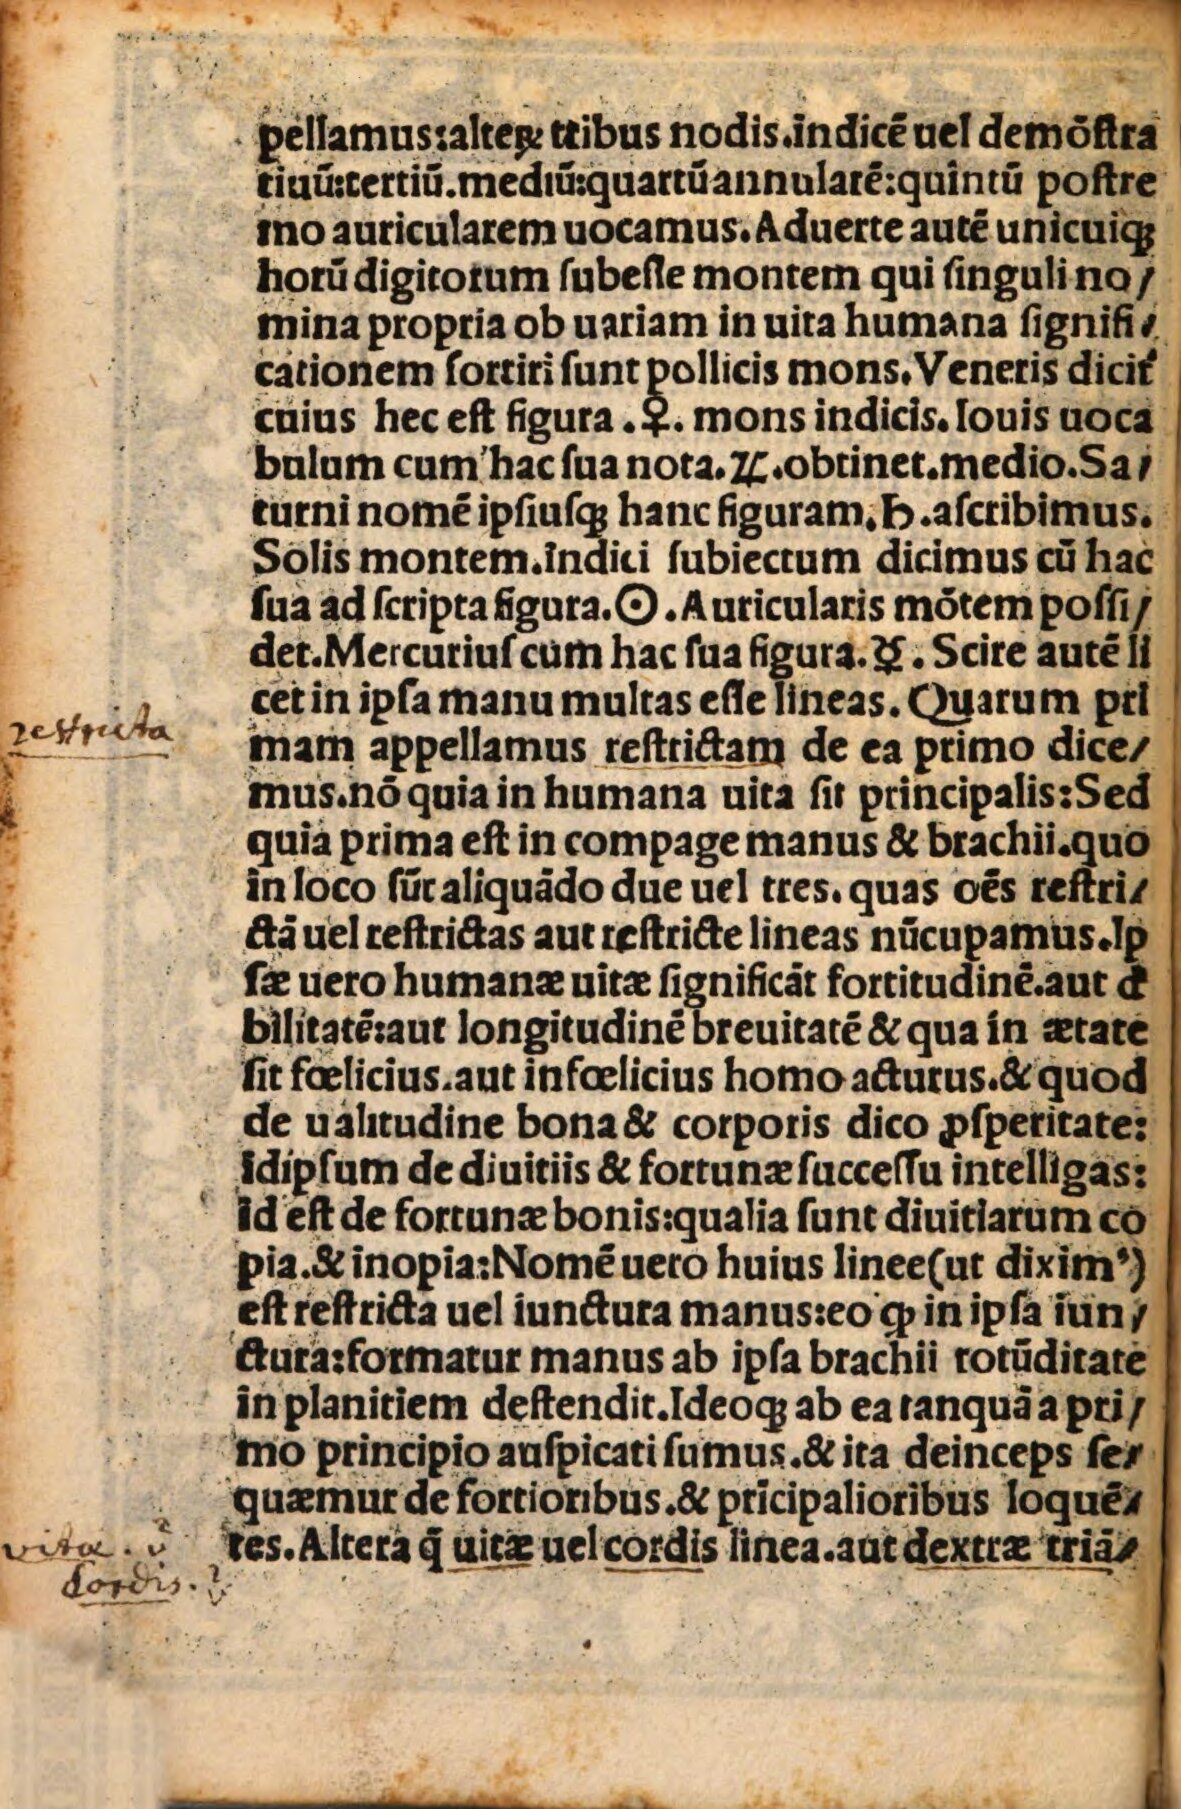 pellamus:alteꝝ tribus nodis.indicē uel demōſtra
tiuū:tertiū.mediū:quartū annularē:quintū poſtre
mo auricularem uocamus.Aduerte autē unicuiqꝫ
horū digitorum ſubeſſe montem qui ſinguli no/
mina propria ob uariam in uita humana ſignifi/
cationem ſortiri ſunt pollicis mons.Veneris dicit᷑
cuius hec eſt figura .♀. mons indicis.Iouis uoca
bulum cum hac ſua nota.♃.obtinet.medio.Sa/
turni nomē ipſiuſqꝫ hanc figuram.♄.aſcribimus.
Solis montem.Indici ſubiectum dicimus cū hac
ſua ad ſcripta figura.☉.Auricularis mōtem poſſi/
det.Mercuriuſ cum hac ſua figura.☿. Scire autē li
cet in ipſa manu multas eſſe lineas. Quarum pri
restricta
mam appellamus reſtrictam de ea primo dice/
mus.nō quia in humana uita ſit principalis:Sed
quia prima eſt in compage manus & brachii.quo
in loco ſūt aliquādo due uel tres. quas oēs reſtri/
ctā uel reſtrictas aut reſtricte lineas nūcupamus.Ip
ſæ uero humanæ uitæ ſignificāt fortitudinē.aut đ
bilitatē:aut longitudinē breuitatē & qua in ætate
ſit fœlicius.aut infœlicius homo acturus.& quod
de ualitudine bona & corporis dico ꝓſperitate:
Idipſum de diuitiis & fortunæ ſucceſſu intelligas:
Id eſt de fortunæ bonis:qualia ſunt diuitiarum co
pia.& inopia:Nomē uero huius linee(ut diximꝰ)
eſt reſtricta uel iunctura manus:eo ꝙ in ipſa iun/
ctura:formatur manus ab ipſa brachii rotūditate
in planitiem deſtendit.Ideoqꝫ ab ea tanquā a pri/
mo principio auſpicati ſumus.& ita deinceps ſe/
quæmur de fortioribus.& prīcipalioribus loquē/
vitæ . ?
tes.Altera q̄ uitæ uel cordis linea.aut dextræ triā/
Cordis. ?